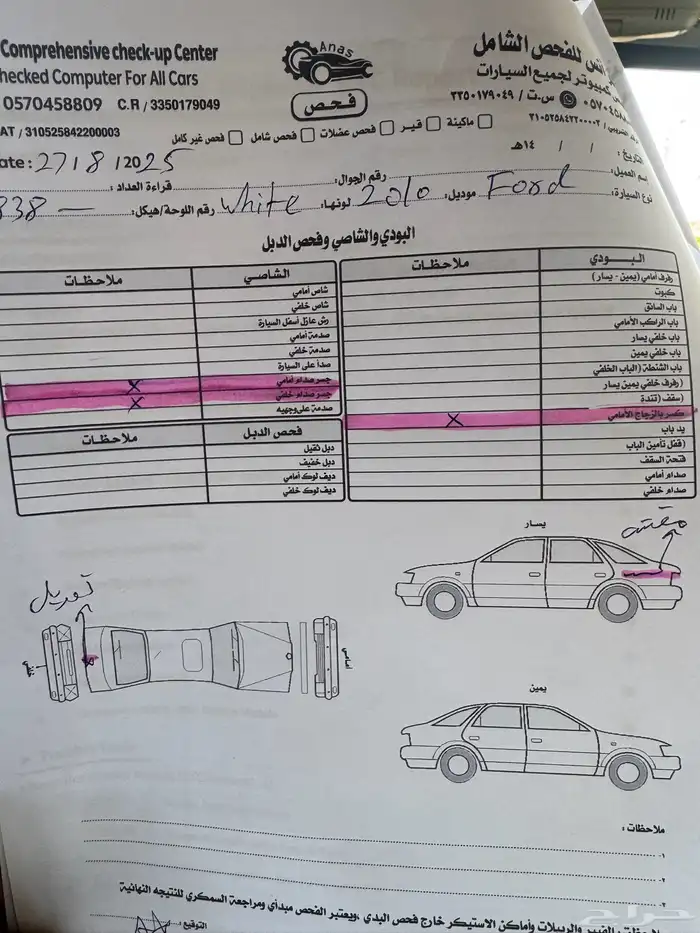 Comprehensive check-up Center
hecked Computer For All Cars
0570458809 C.R / 3350179049
AT / 310525842200003
Anas
فحص
نس للفحص الشامل
كمبيوتر لجميع السيارات
س.ت / ٣٣٥٠١٧٩٠٤٩
٣١٠٥٢٥٨٤٢٢٠٠٠٠٣
ماكينة
قير
فحص عضلات
فحص شامل
فحص غير كامل
ate: 27/8/2025
التاريخ: / / ١٤هـ
إسم العميل:
رقم الجوال:
قراءة العداد:
نوع السيارة: Ford موديل: 2010 لونها: White رقم اللوحة/هيكل: 338
البودي والشاصي وفحص الدبل
البـــودي ملاحظات
رفرف أمامي (يمين - يسار)
كبوت
باب السائق
باب الراكب الأمامي
باب خلفي يسار
باب خلفي يمين
باب الشنطة (الباب الخلفي
(رفرف خلفي يمين يسار
(سقف (تندة
كسر بالزجاج الأمامي X
يد باب
(قفل تأمين الباب
فتحة السقف
صدام أمامي
صدام خلفي
الشاصي ملاحظات
شاص أمامي
شاص خلفي
رش عازل أسفل السيارة
صدمة أمامي
صدمة خلفي
صدأ على السيارة
جسر صدام أمامي X
جسر صدام خلفي X
صدمة على وجهيه
فحص الدبل ملاحظات
دبل ثقيل
دبل خفيف
ديف لوك أمامي
ديف لوك خلفي
يسار
تعديل
خلفي
أمامي
يمين
ملاحظات :
١-
٢-
٣-
خارج فحص البدي ،ويعتبر الفحص مبدأي ومراجعة السمكري للنتيجه النهائية
التوقيع :
حراج